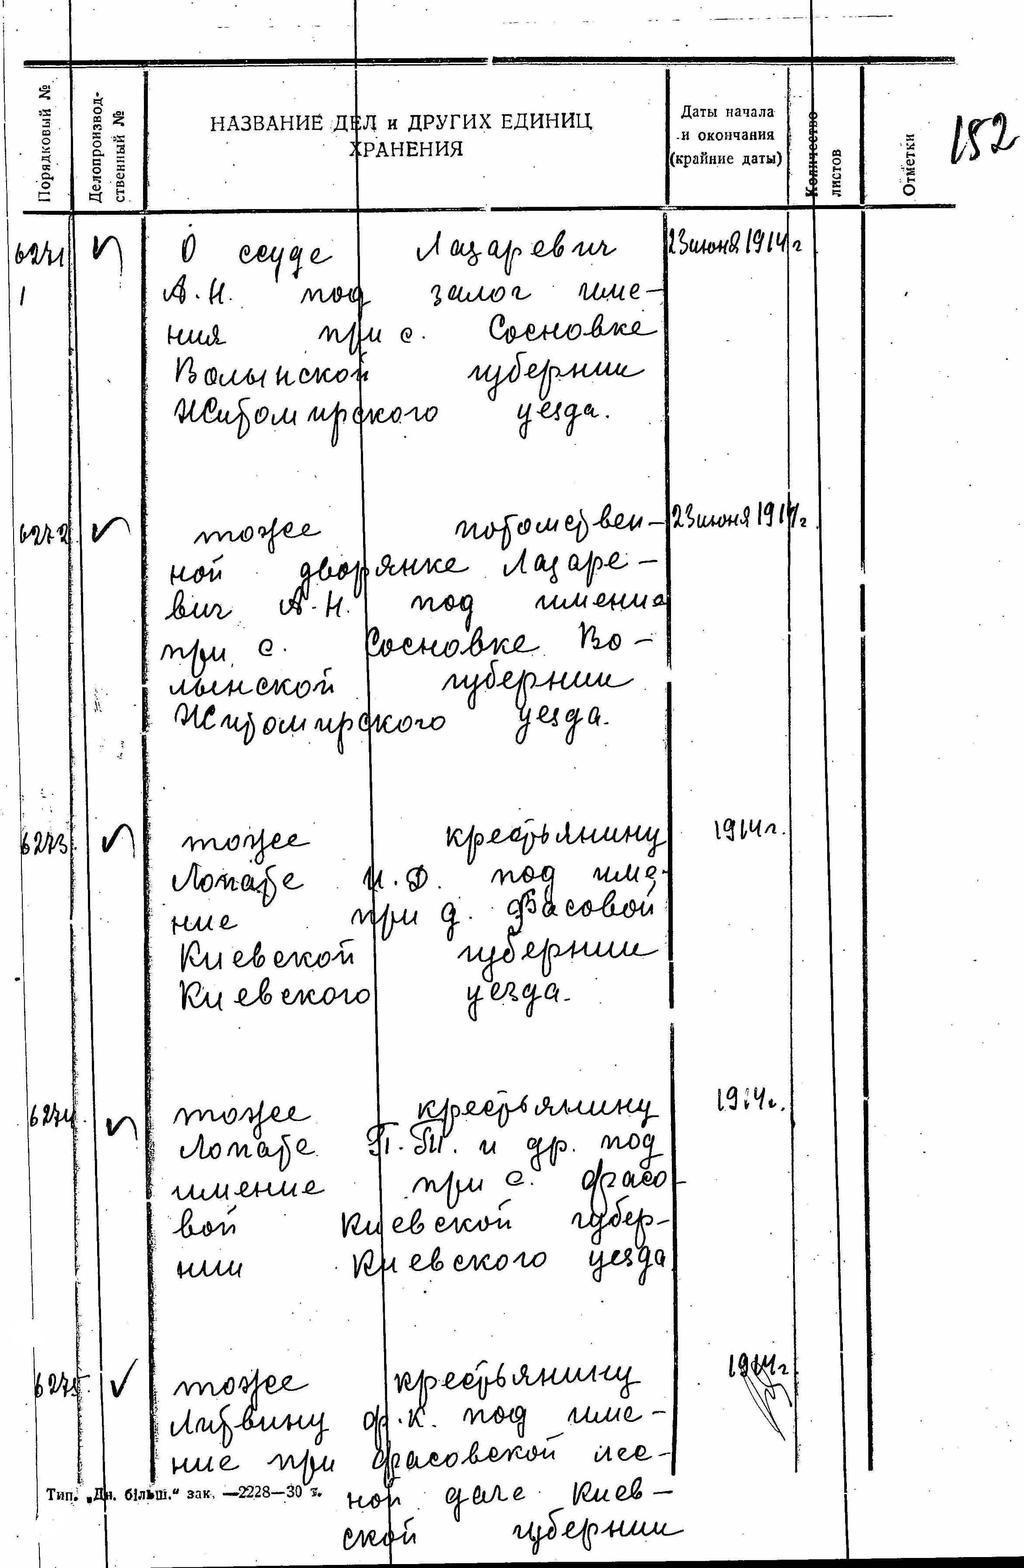 152
Порядковый №
Делопроизвод-
ственный №
НАЗВАНИЕ ДЕЛ и ДРУГИХ ЕДИНИЦ
ХРАНЕНИЯ
Даты начала
и окончания
(крайние даты)
Количество
листов
Отметки
6271 О ссуде Лазаревич 23 июня 1914 г
1 А.Н. под залог име-
ния при с. Сосновке
Волынской губернии
Житомирского уезда.
6272 тоже потомствен- 23 июня 1914 г.
ной дворянке Лазаре-
вич А.Н. под имение
при с. Сосновке Во-
лынской губернии
Житомирского уезда.
6273 тоже крестьянину 1914 г.
Лопате И.Ф. под име-
ние при д. Фасовой
Киевской губернии
Киевского уезда.
6274. тоже крестьянину 1914 г.
Лопате П.П. и др. под
имение при с. Фасо-
вой Киевской губер-
нии Киевского уезда
6275. тоже крестьянину 1914 г.
Литвину Ф.К. под име-
ние при Фасовской лес-
ной даче Киев-
ской губернии
Тип. „Дн. більш." зак. —2228—30 г.